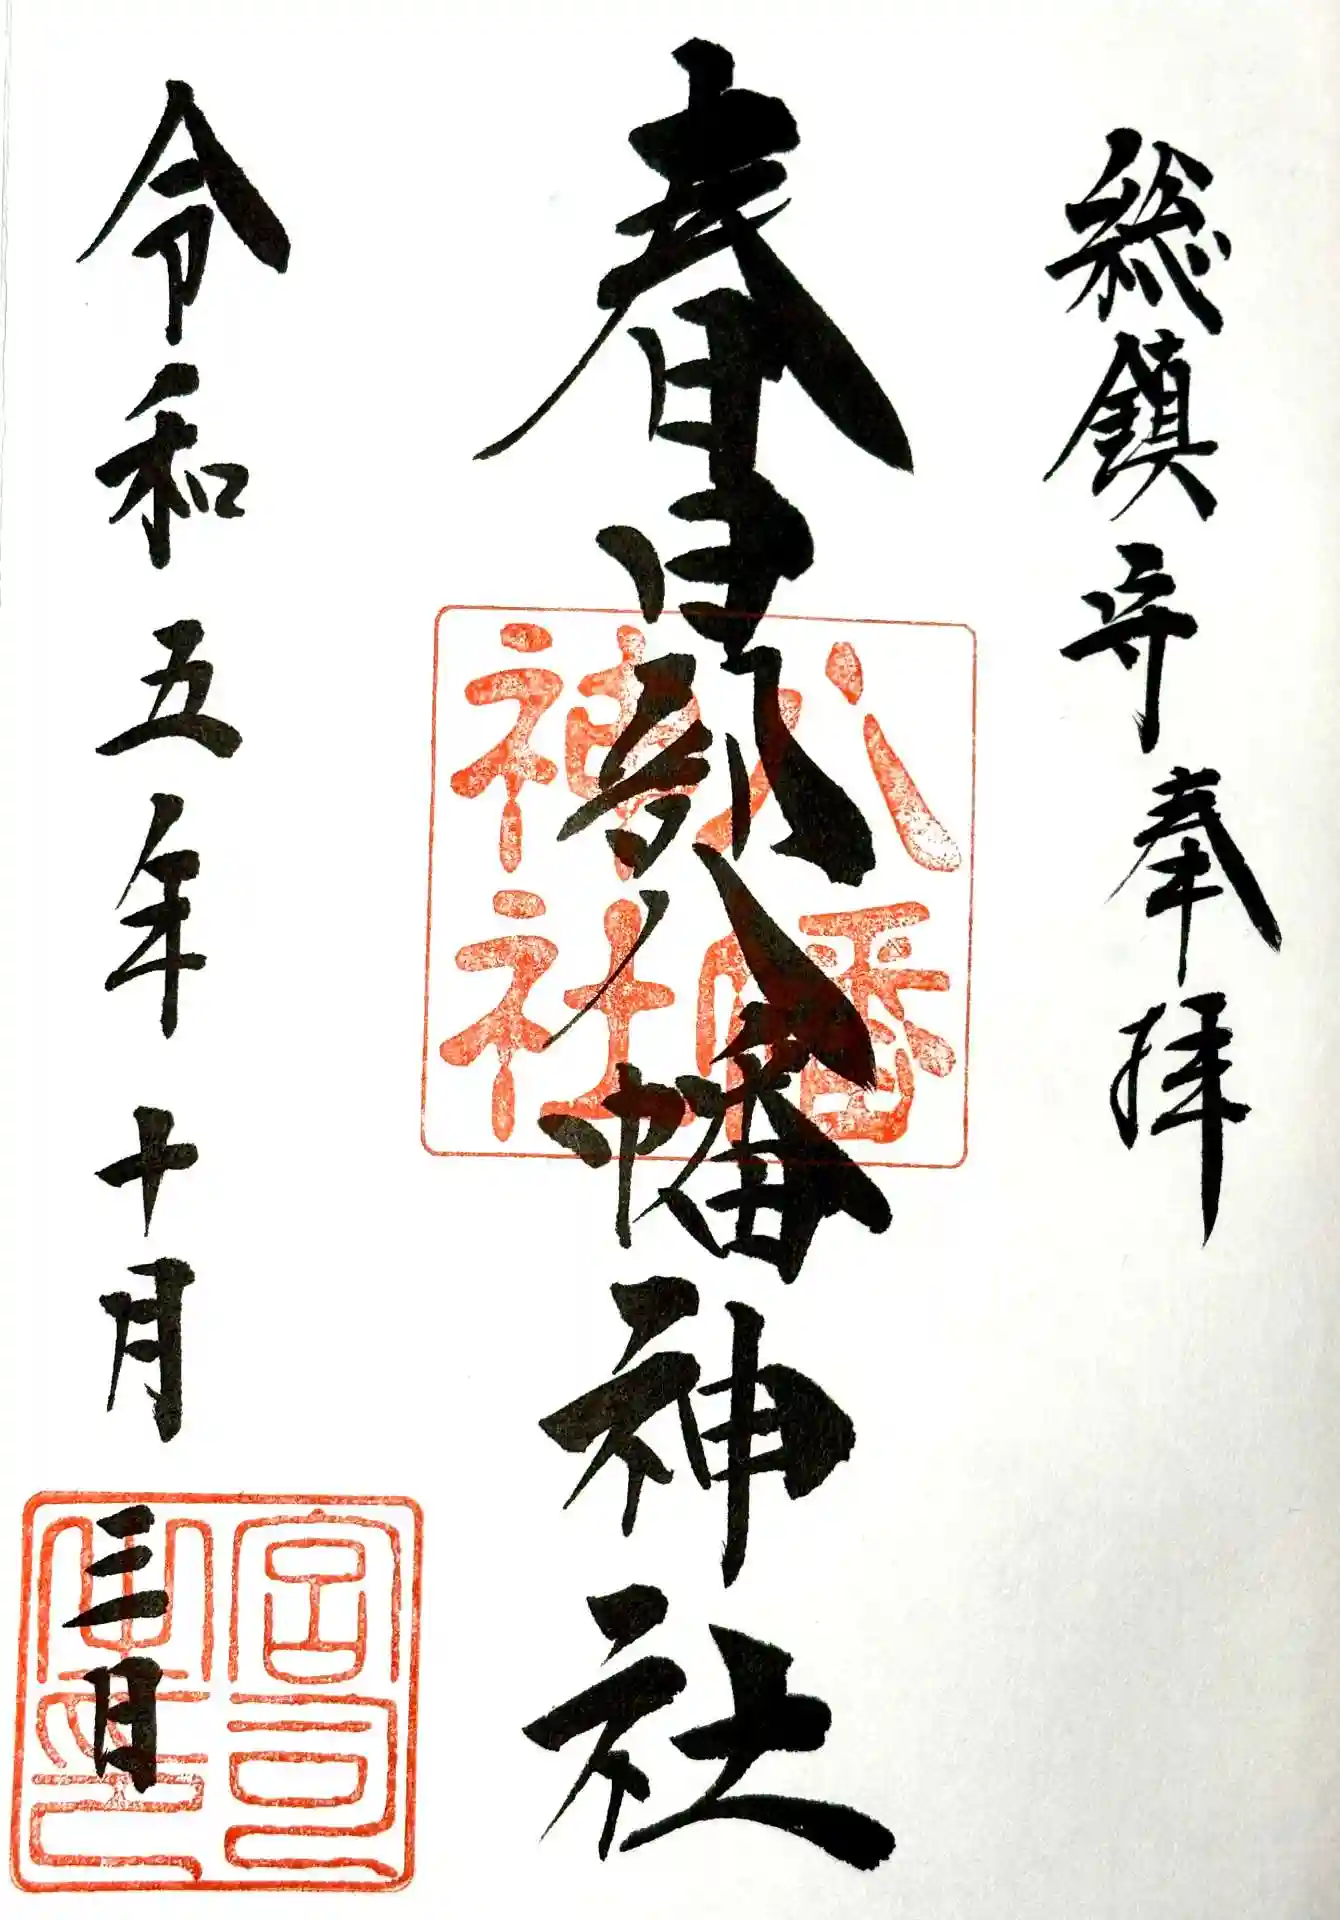 総鎮守奉拝
春日部八幡神社
八幡
神社
令和五年十月三日
宮司
之印